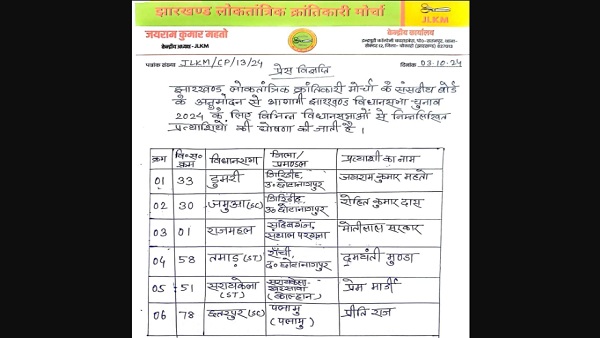 झारखण्ड लोकतांत्रिक क्रांतिकारी मोर्चा
JLKM
जयराम कुमार महतो
केन्द्रीय अध्यक्ष - JLKM
केन्द्रीय कार्यालय
पत्रांक संख्या JLKM/CP/13/24
दिनांक 03.10.24
प्रेस विज्ञप्ति
झारखण्ड लोकतांत्रिक क्रांतिकारी मोर्चा के संसदीय बोर्ड
के अनुमोदन से आगामी झारखण्ड विधानसभा चुनाव
2024 के लिए विभिन्न विधानसभाओं से निम्नलिखित
प्रत्याशियों की घोषणा की जाती है।
क्रम वि०स० क्रम विधानसभा जिला/प्रमण्डल प्रत्याशी का नाम
01 33 डुमरी गिरिडीह, उ० छोटानागपुर जयराम कुमार महतो
02 30 जमुआ (SC) गिरिडीह, उ० छोटानागपुर रोहित कुमार दास
03 01 राजमहल साहिबगंज, संथाल परगना मोतीलाल सरकार
04 58 तमाड़ (ST) राँची, द० छोटानागपुर दमयंती मुण्डा
05 51 सरायकेला (ST) सरायकेला- खरसावां (कोल्हान) प्रेम मार्डी
06 78 छतरपुर (SC) पलामु (पलामु) प्रीति राज